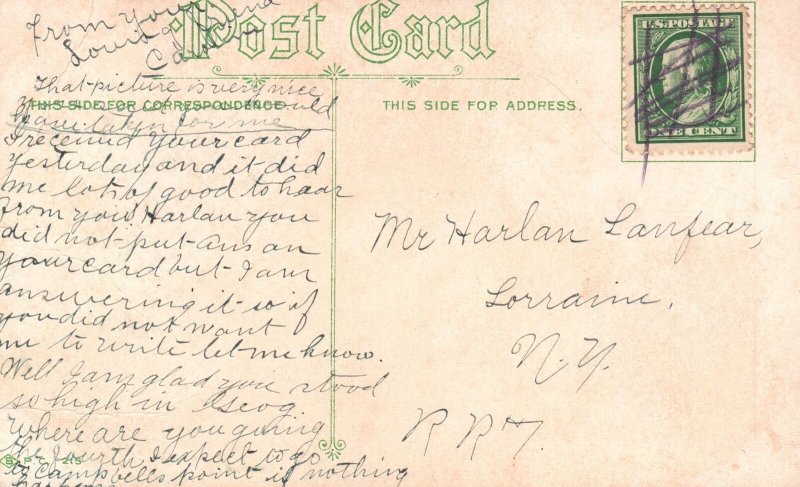 From your
Loving friend
Post Card
U.S. POSTAGE
ONE CENT
That picture is very nice
THIS SIDE FOR CORRESPONDENCE.
THIS SIDE FOR ADDRESS.
you taken for me
I received your card
yesterday and it did
me lots of good to hear
from you Harlan you
did not put Ans on
your card but I am
answering it so if
you did not want
me to write let me know.
Well I am glad you stood
so high in Geog
Where are you going
the fourth I expect to go
to Campbells point if nothing
happens
B.P.C. 215
Mr Harlan Lanfear,
Lorraine,
N.Y.